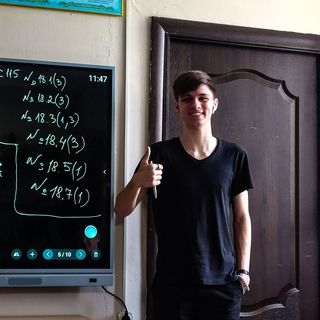 115
11:47
№ 18.1(3)
№ 18.2(3)
№ 18.3(1,3)
№ 18.4(3)
№ 18.5(1)
№ 18.7(1)
5/10